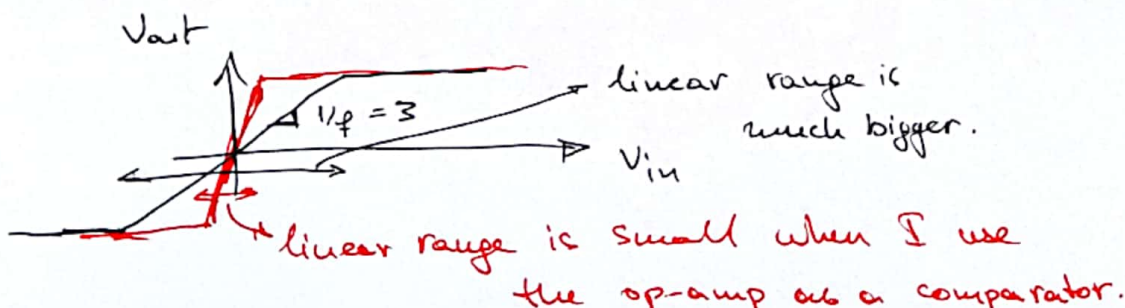 Vout
1/f = 3
linear range is
much bigger.
Vin
linear range is small when I use
the op-amp as a comparator.